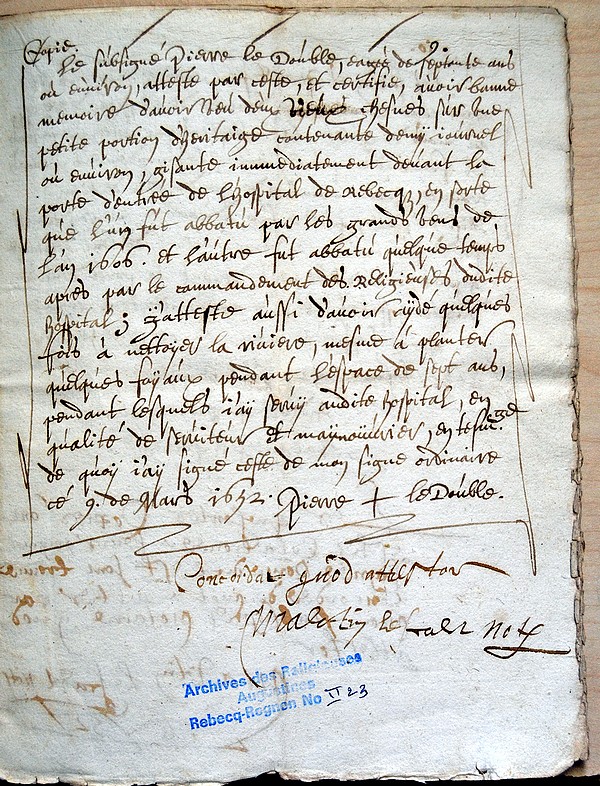 Copie.
Le subsigné Pierre le Double, eaagé de septante ans
ou environ, atteste par ceste, et certifie, avoir bonne
memoire d'avoir veu deux vieux chesnes sur une
petite portion d'heritaige contenante demÿ iournel
ou environ, gisante immediatement devant la
porte d'entrée de l'hospital de Rebecq, en sorte
que l'un fut abbatu par les grands vens de
l'an 1606. et l'autre fut abbatu quelque temps
apres par le commandement des Religieuses dudite
hospital; i'atteste aussi d'avoir aÿdé quelques
fois à nettoyer la riviere, mesme à planter
quelques foyaux pendant l'espace de sept ans,
pendant lesquels i'aÿ servÿ audite hospital, en
qualité de serviteur et maynouvrier, en tesmoge
de quoÿ i'aÿ signé ceste de mon signe ordinaire
ce 9. de Mars 1652. Pierre + le Double.
Concordat quod attestor
not
Archives des Religieuses
Augustines
Rebecq-Rognon No II 23